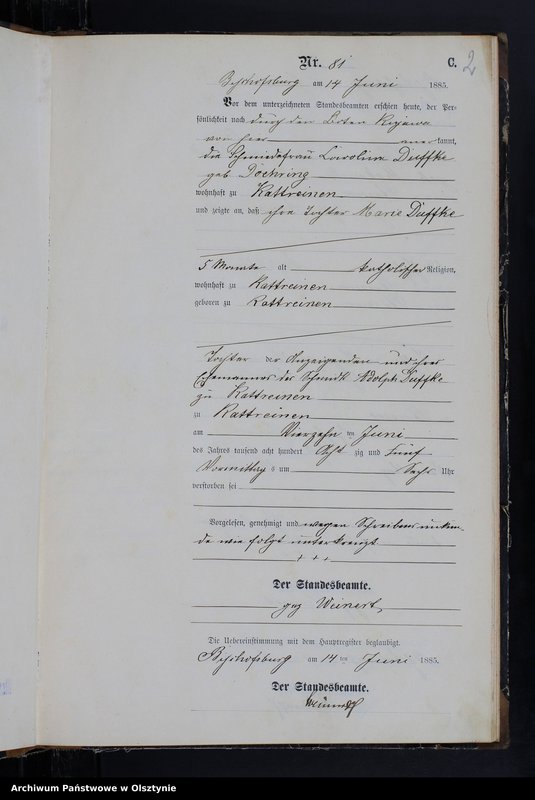 Nr. 81
C. 2
Bischofsburg am 14 Juni 1885.
Vor dem unterzeichneten Standesbeamten erschien heute, der Per-
sönlichkeit nach durch den Boten
von hier kannt,
die Schmiedefrau Carolina Duffke
geb. Doehring
wohnhaft zu Kattreinen
und zeigte an, daß ihre Tochter Marie Duffke
5 Monate alt katholischer Religion,
wohnhaft zu Kattreinen
geboren zu Kattreinen
Tochter der Anzeigenden und ihres
Ehemannes des Schmidt Adolph Duffke
zu Kattreinen
zu Kattreinen
am Vierzehn ten Juni
des Jahres tausend acht hundert Acht zig und Fünf
Vormittag s um Sechs Uhr
verstorben sei
Vorgelesen, genehmigt und wegen Schreibens
wie folgt unterkreuzt
+ + +
Der Standesbeamte.
gez Weinert
Die Uebereinstimmung mit dem Hauptregister beglaubigt.
Bischofsburg am 14 ten Juni 1885.
Der Standesbeamte.
Weinert
Archiwum Państwowe w Olsztynie